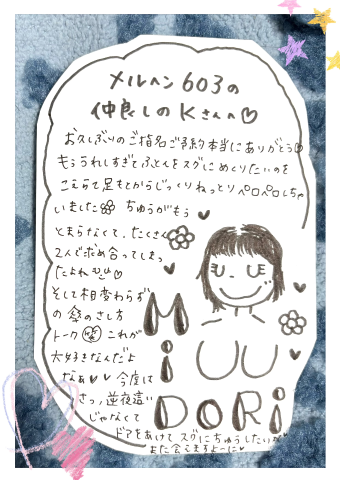 メルヘン603の
仲良しのKさんへ♡
お久しぶりのご指名ご予約本当にありがとう♡
もううれしすぎてふとんをスグにめくりたいのを
こえらて足もとからじっくりねっとりペロペロしちゃ
いました ちゅうがもう
とまらなくて、たくさん
2人で求め合ってしまっ
たよね♡
そして相変わらず
の傘のさし方
トーク これが
大好きなんだよ
なぁ♥♥ 今度は
さっ、逆夜這い
じゃなくて
ドアをあけてスグにちゅうしたいな♥
また会えますよーに♡
MiDORi